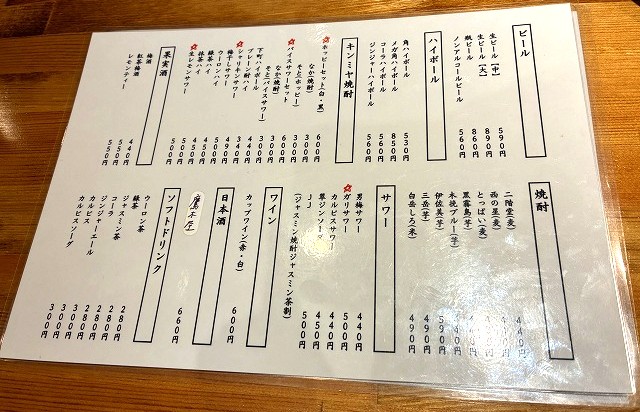 ビール
生ビール(中) 590円
生ビール(大) 890円
瓶ビール 860円
ノンアルコールビール 560円
ハイボール
角ハイボール 530円
メガ角ハイボール 850円
コーラハイボール 560円
ジンジャーハイボール 560円
キンミヤ焼酎
ホッピーセット(白・黒) 600円
なか(焼酎) 300円
そと(ホッピー) 300円
バイスサワーセット 600円
なか(焼酎) 300円
そと(バイスサワー) 300円
下町ハイボール
プレーン酎ハイ
シャリキンサワー
梅干しサワー
ウーロンハイ
緑茶ハイ
抹茶ハイ 500円
生レモンサワー 500円
果実酒
梅酒 440円
紅茶梅酒 550円
レモンティー 550円
焼酎
二階堂(麦) 440円
西の星(麦)
とっぱい(麦)
黒霧島(芋)
木挽ブルー(芋)
伊佐美(芋) 590円
三岳(芋) 490円
白岳しろ(米) 490円
サワー
男梅サワー 440円
ガリサワー 500円
カルピスサワー 440円
翠ジンソーダ 450円
JJ 500円
(ジャスミン焼酎ジャスミン茶割)
ワイン
カップワイン(赤・白) 600円
日本酒
660円
ソフトドリンク
ウーロン茶 280円
緑茶 280円
ジャスミン茶 280円
コーラ 280円
ジンジャーエール 300円
カルピス 300円
カルピスソーダ 300円